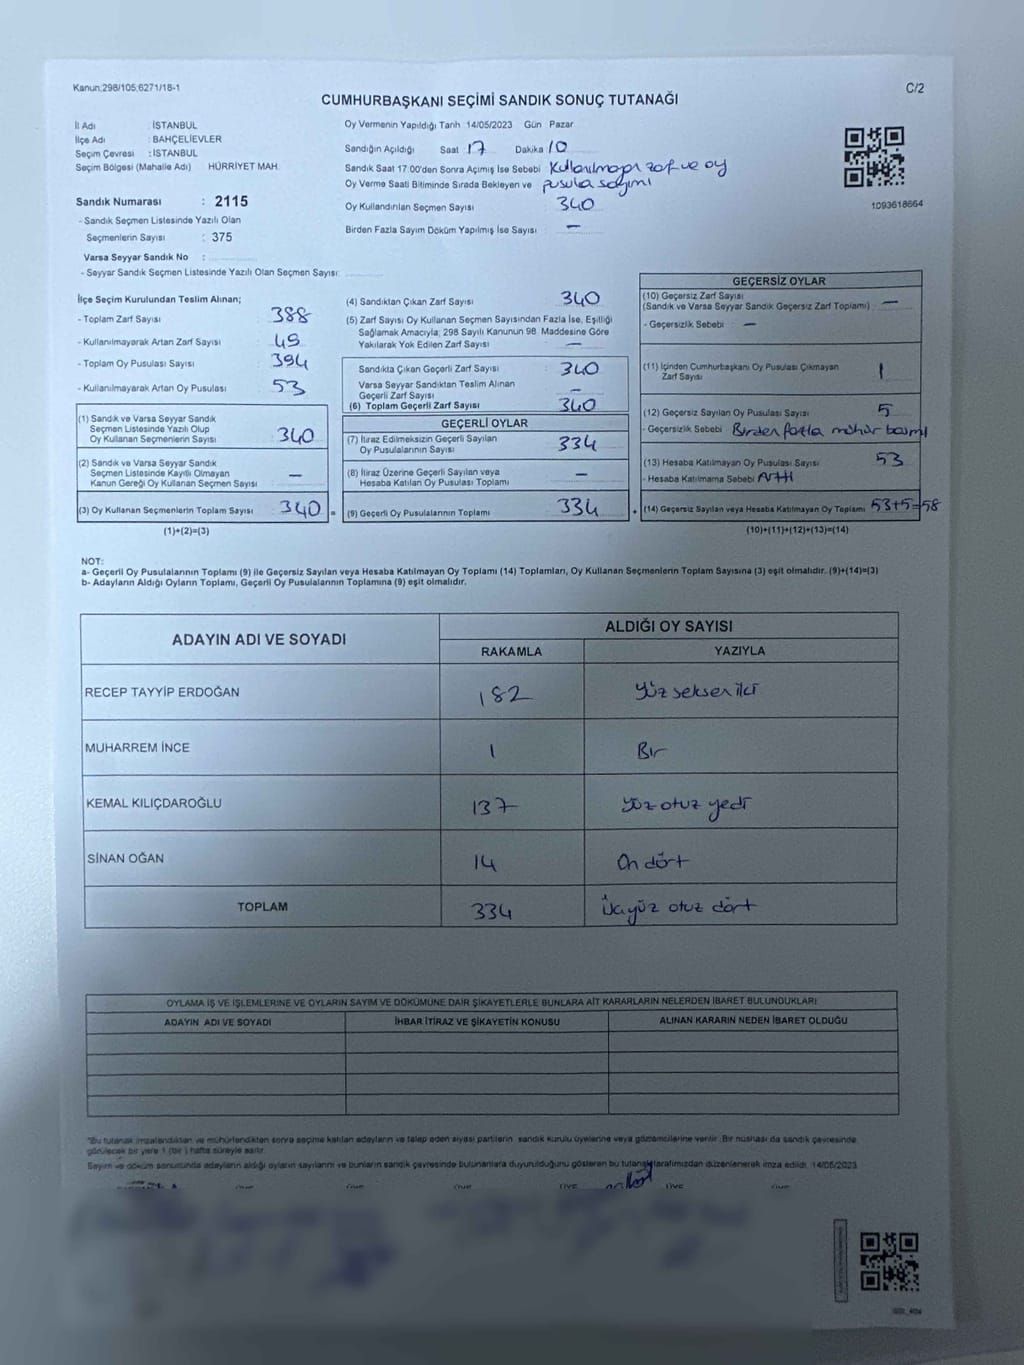 Kanun;298/105;6271/18-1
C/2
CUMHURBAŞKANI SEÇİMİ SANDIK SONUÇ TUTANAĞI
İl Adı : İSTANBUL
İlçe Adı : BAHÇELİEVLER
Seçim Çevresi : İSTANBUL
Seçim Bölgesi (Mahalle Adı) HÜRRİYET MAH.
Sandık Numarası : 2115
- Sandık Seçmen Listesinde Yazılı Olan
Seçmenlerin Sayısı : 375
Varsa Seyyar Sandık No :
- Seyyar Sandık Seçmen Listesinde Yazılı Olan Seçmen Sayısı:
Oy Vermenin Yapıldığı Tarih 14/05/2023 Gün Pazar
Sandığın Açıldığı Saat 17 Dakika 10
Sandık Saat 17.00'den Sonra Açımış İse Sebebi Kullanılmayan zarf ve oy
Oy Verme Saati Bitiminde Sırada Bekleyen ve pusula sayımı
Oy Kullandırılan Seçmen Sayısı 340
Birden Fazla Sayım Döküm Yapılmış İse Sayısı : —
1093618664
İlçe Seçim Kurulundan Teslim Alınan;
- Toplam Zarf Sayısı : 388
- Kullanılmayarak Artan Zarf Sayısı : 49
- Toplam Oy Pusulası Sayısı : 394
- Kullanılmayarak Artan Oy Pusulası : 53
(1) Sandık ve Varsa Seyyar Sandık
Seçmen Listesinde Yazılı Olup
Oy Kullanan Seçmenlerin Sayısı : 340
(2) Sandık ve Varsa Seyyar Sandık
Seçmen Listesinde Kayıtlı Olmayan
Kanun Gereği Oy Kullanan Seçmen Sayısı : —
(3) Oy Kullanan Seçmenlerin Toplam Sayısı : 340 =
(1)+(2)=(3)
(4) Sandıktan Çıkan Zarf Sayısı : 340
(5) Zarf Sayısı Oy Kullanan Seçmen Sayısından Fazla İse, Eşitliği
Sağlamak Amacıyla; 298 Sayılı Kanunun 98. Maddesine Göre
Yakılarak Yok Edilen Zarf Sayısı : —
Sandıkta Çıkan Geçerli Zarf Sayısı : 340
Varsa Seyyar Sandıktan Teslim Alınan
Geçerli Zarf Sayısı : —
(6) Toplam Geçerli Zarf Sayısı : 340
GEÇERLİ OYLAR
(7) İtiraz Edilmeksizin Geçerli Sayılan
Oy Pusulalarının Sayısı : 334
(8) İtiraz Üzerine Geçerli Sayılan veya
Hesaba Katılan Oy Pusulası Toplamı : —
(9) Geçerli Oy Pusulalarının Toplamı : 334 +
GEÇERSİZ OYLAR
(10) Geçersiz Zarf Sayısı
(Sandık ve Varsa Seyyar Sandık Geçersiz Zarf Toplamı) : —
- Geçersizlik Sebebi : —
(11) İçinden Cumhurbaşkanı Oy Pusulası Çıkmayan
Zarf Sayısı : 1
(12) Geçersiz Sayılan Oy Pusulası Sayısı : 5
- Geçersizlik Sebebi Birden fazla mühür basımı
(13) Hesaba Katılmayan Oy Pusulası Sayısı : 53
- Hesaba Katılmama Sebebi Arttı
(14) Geçersiz Sayılan veya Hesaba Katılmayan Oy Toplamı 53+5=58
(10)+(11)+(12)+(13)=(14)
NOT:
a- Geçerli Oy Pusulalarının Toplamı (9) ile Geçersiz Sayılan veya Hesaba Katılmayan Oy Toplamı (14) Toplamları, Oy Kullanan Seçmenlerin Toplam Sayısına (3) eşit olmalıdır. (9)+(14)=(3)
b- Adayların Aldığı Oyların Toplamı, Geçerli Oy Pusulalarının Toplamına (9) eşit olmalıdır.
ADAYIN ADI VE SOYADI
ALDIĞI OY SAYISI
RAKAMLA YAZIYLA
RECEP TAYYİP ERDOĞAN 182 Yüz seksen iki
MUHARREM İNCE 1 Bir
KEMAL KILIÇDAROĞLU 137 Yüz otuz yedi
SİNAN OĞAN 14 On dört
TOPLAM 334 Üçyüz otuz dört
OYLAMA İŞ VE İŞLEMLERİNE VE OYLARIN SAYIM VE DÖKÜMÜNE DAİR ŞİKAYETLERLE BUNLARA AİT KARARLARIN NELERDEN İBARET BULUNDUKLARI
ADAYIN ADI VE SOYADI İHBAR İTİRAZ VE ŞİKAYETİN KONUSU ALINAN KARARIN NEDEN İBARET OLDUĞU
"Bu tutanak imzalandıktan ve mühürlendikten sonra seçime katılan adayların ve talep eden siyasi partilerin sandık kurulu üyelerine veya gözlemcilerine verilir. Bir nüshası da sandık çevresinde
görülecek bir yere 1 (bir) hafta süreyle asılır.
Sayım ve döküm sonucunda adayların aldığı oyların sayılarını ve bunların sandık çevresinde bulunanlara duyurulduğunu gösteren bu tutanak tarafımızdan düzenlenerek imza edildi. 14/05/2023